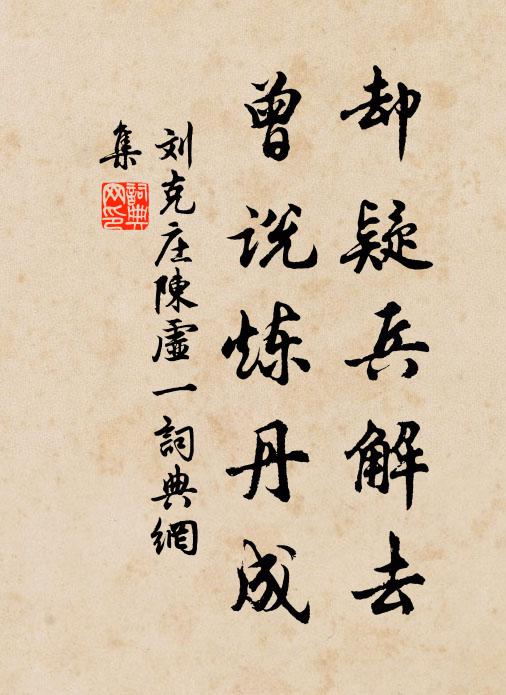 却疑兵解去
曾说炼丹成
刘克庄陳虚一詞典網
集
詞典网印